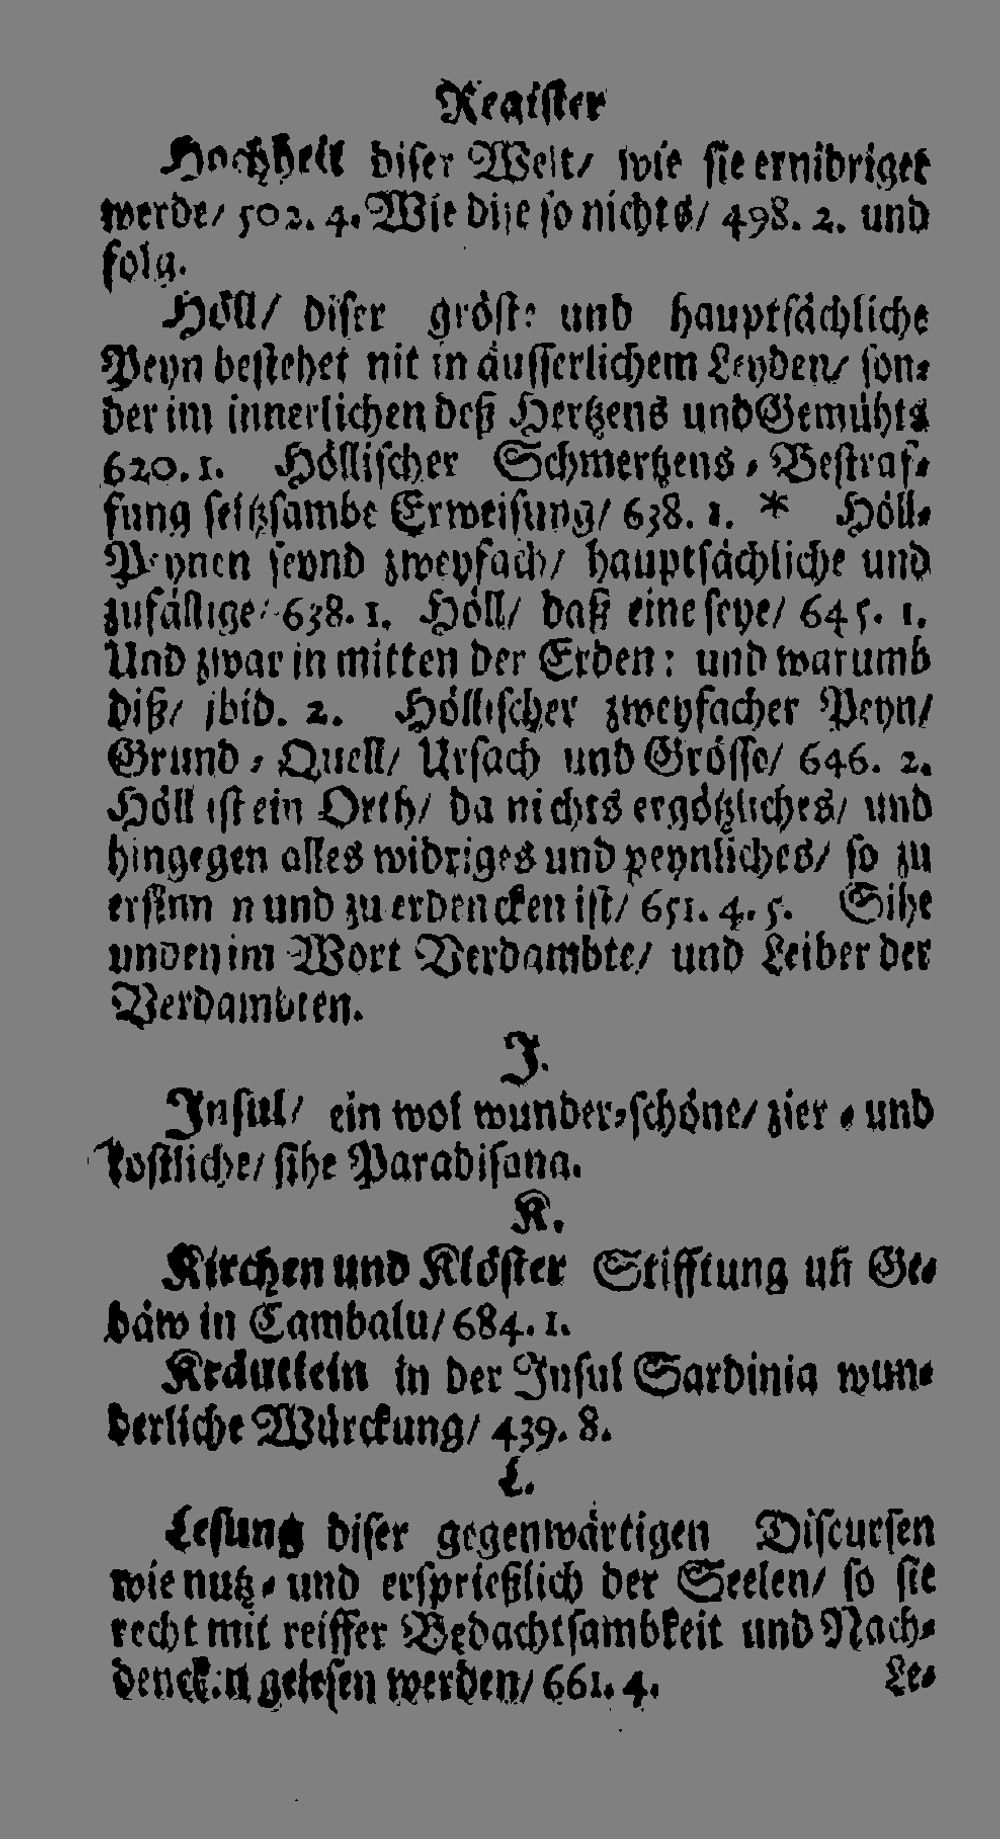 Register
Hochheit diser Welt/ wie sie ernidriget
werde/ 502. 4. Wie dise so nichts/ 498. 2. und
folg.
Höll/ diser gröste und hauptsächliche
Peyn bestehet nit in äusserlichem Leyden/ son-
der im innerlichen deß Hertzens und Gemühts
620. 1. Höllischer Schmertzens-Bestraf-
fung seltzsambe Erweisung/ 638. 1. * Höll-
Peynen seynd zweyfach/ hauptsächliche und
zufällige/ 638. 1. Höll/ daß eine seye/ 645. 1.
Und zwar in mitten der Erden: und warumb
diß/ jbid. 2. Höllischer zweyfacher Peyn/
Grund-Quell/ Ursach und Grösse/ 646. 2.
Höll ist ein Orth/ da nichts ergötzliches/ und
hingegen alles widriges und peynliches/ so zu
ersinnen und zu erdencken ist/ 651. 4. 5. Sihe
unden im Wort Verdambte/ und Leiber der
Verdambten.
J.
Insul/ ein wol wunder-schöne/ zier- und
kostliche/ sihe Paradisana.
K.
Kirchen und Klöster Stifftung uñ Ge-
bäw in Cambalu/ 684. 1.
Kräutlein in der Insul Sardinia wun-
derliche Würckung/ 439. 8.
L.
Lesung diser gegenwärtigen Discursen
wie nutz- und ersprießlich der Seelen/ so sie
recht mit reiffer Bedachtsambkeit und Nach-
dencken gelesen werden/ 661. 4. Le-